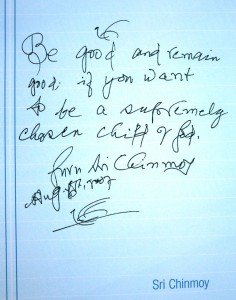 Be good and remain
good if you want
to be a supremely
chosen child of God.
Sri Chinmoy
Aug.
Sri Chinmoy